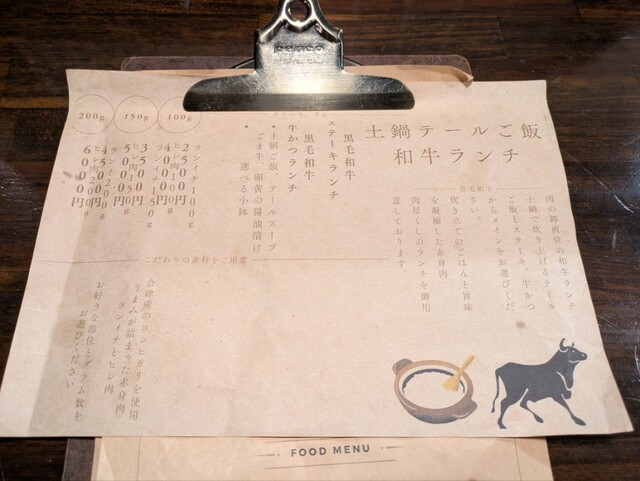 penco
土鍋テールご飯
和牛ランチ
黒毛和牛
肉の卸直営の和牛ランチ
土鍋で炊き上げるテール
ご飯とステーキ、牛かつ
からメインをお選びくだ
さい。
炊き立てのごはんと旨味
を凝縮した赤身肉
肉尽くしのランチを御用
意しております。
黒毛和牛
ステーキランチ
黒毛和牛
牛かつランチ
・土鍋ご飯、テールスープ
ごま牛、卵黄の醤油漬け
・選べる小鉢
100g
ランイチ100g
2500円
ヒレ肉100g
4000円
150g
ランイチ150g
3500円
ヒレ肉150g
5000円
200g
ランイチ200g
4500円
ヒレ肉200g
6000円
こだわりの素材をご用意
会津産のコシヒカリを使用
うまみが詰まった赤身肉
ランイチとヒレ肉
お好きな部位とグラム数を
お選びください
FOOD MENU